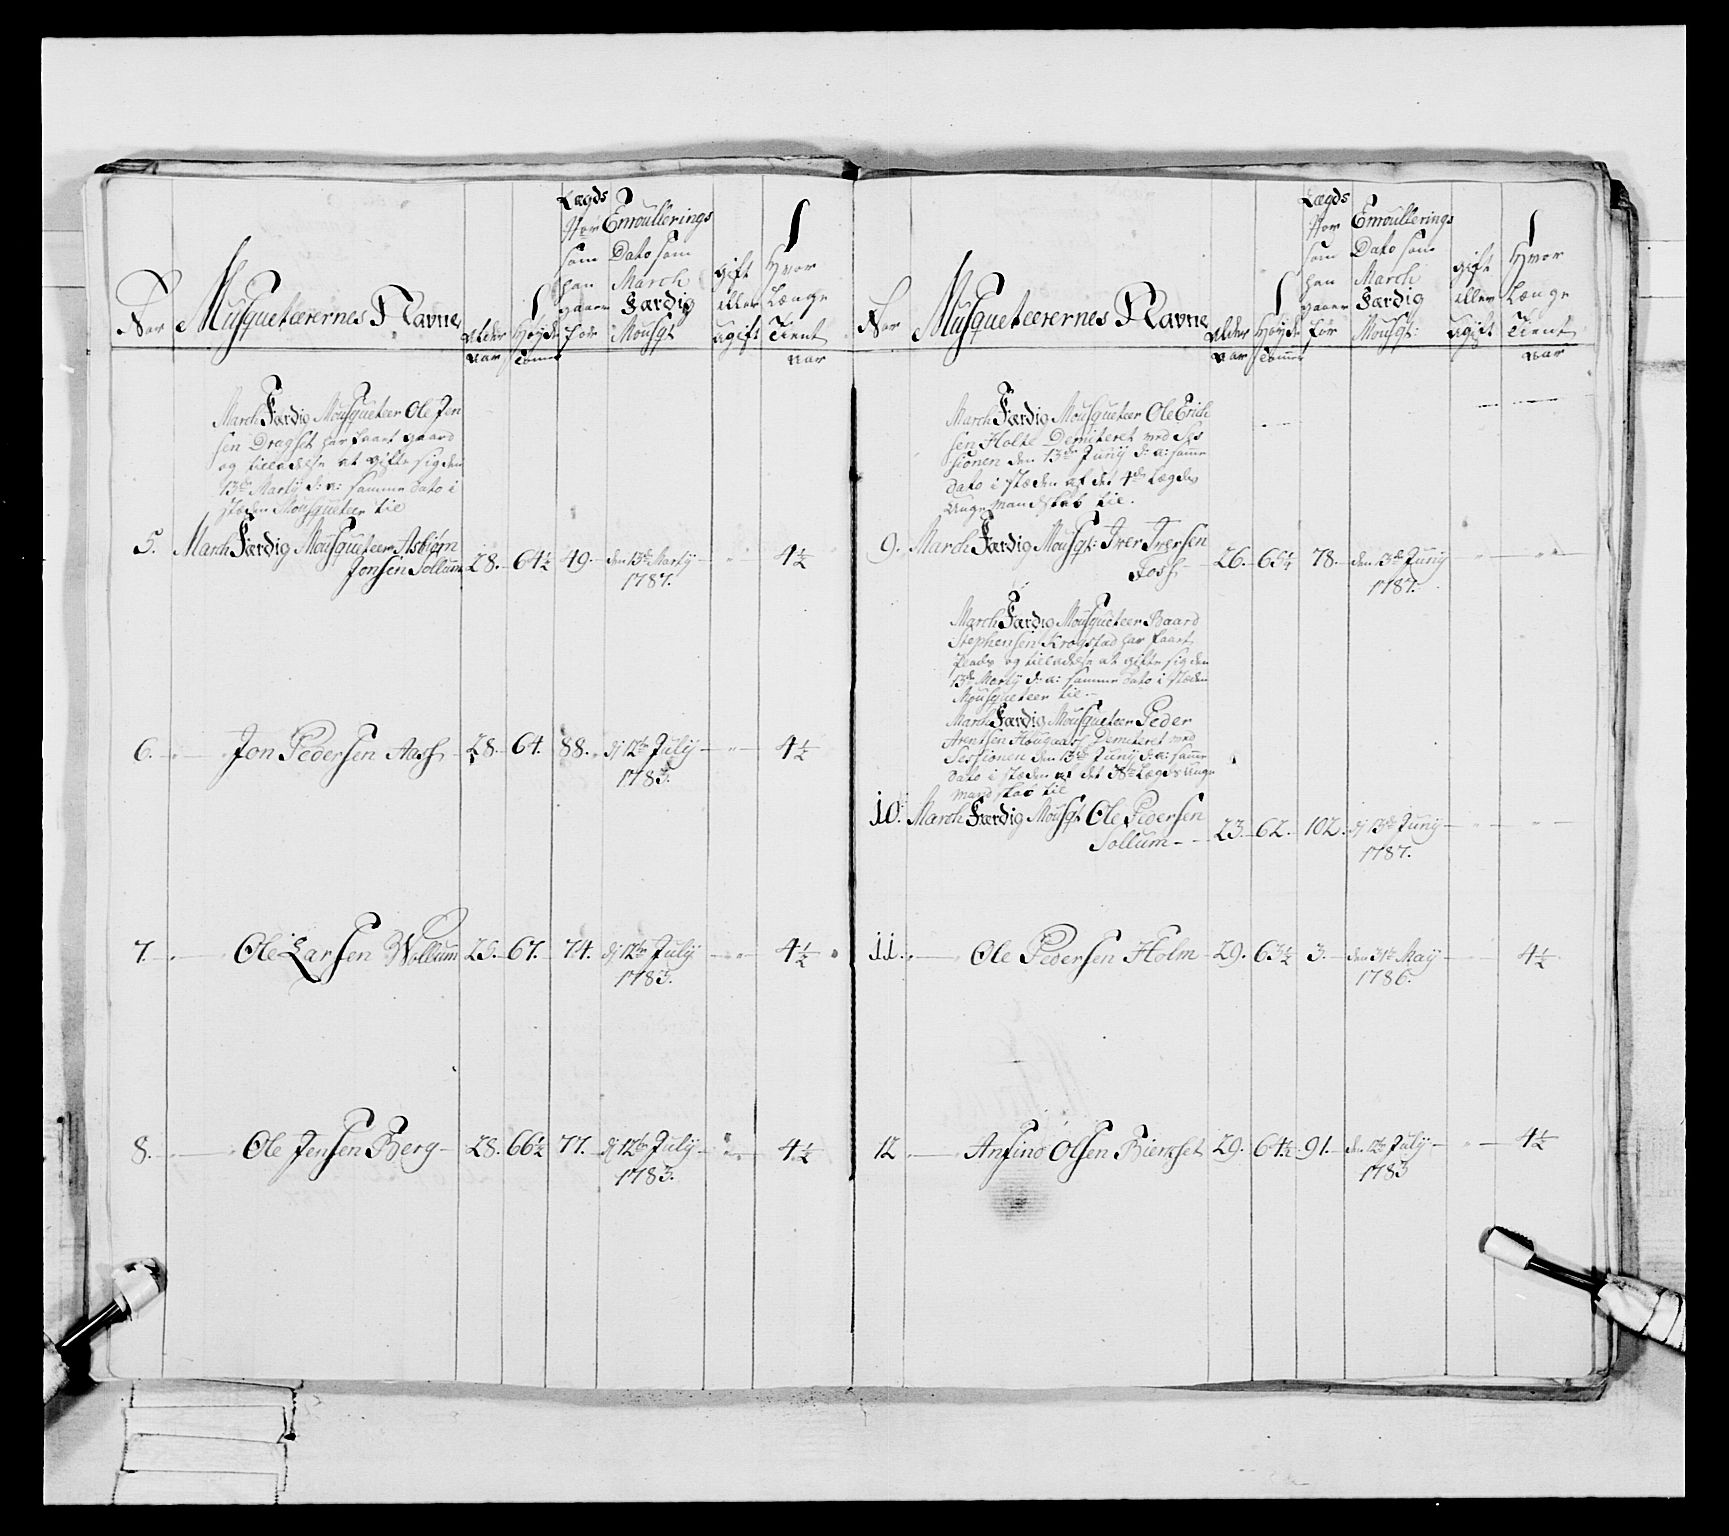 Nor
Musqueteerernes Navne
Alder
Aar
Høyde
Tomer
Lægds
Nor
som
han
gaaer
for
Enroullerings
Dato som
March
Færdig
Mousqt
gift
eller
ugift
Hvor
Længe
Tient
Aar
March Færdig Mousqueteer Ole Jen
sen Dragset har faaet gaard
og tilladelse at gifte sig den
13de Martÿ d: a: samme dato i
stæden Mousqueteer til
5. March Færdig Mousqueteer Asbiørn
Jonsen Sollum 28. 64½ 49. den 13de Martÿ 4½
1787.
6. Jon Pedersen Aass 28. 64. 88. dj 12te Julÿ 4½
1783.
7. Ole Larsen Wollum 25. 67. 74. dj 12te Julÿ 4½
1783.
8. Ole Jensen Berg 28. 66½ 77. dj 12te Julÿ 4½
1783.
Nor
Musqueteerernes Navne
Alder
Aar
Høyde
Tomer
Lægds
Nor
som
han
gaaer
for
Enroullerings
Dato som
March
Færdig
Mousqt:
gift
eller
ugift
Hvor
Længe
Tient
Aar
March Færdig Mousqueteer Ole Erich
sen Holte Demiteret ved Ses
sionen den 13de Junÿ d: a: samme
dato i stæden af det 4de Lægds
Unge Mandskab til.
9. March Færdig Mousqt: Iver Iversen
Foss 26. 65¼ 78. den 13de Junÿ
1787.
March Færdig Mousqueteer Baard
Stephensen Krogstad har faaet
Plads og tilladelse at gifte sig den
13de Martÿ d: a: samme dato i stæden
Mousqueteer til
March Færdig Mousqueteer Peder
Arentsen Hougaass Demiteret ved
Sessionen den 13de Junÿ d: a: samme
dato i stæden af det 58de Lægds Unge
Mandskab til
10. March Færdig Mousqt Ole Pedersen
Sollum 23. 62. 102. dj 13de Junÿ
1787.
11. Ole Pedersen Holm 29. 63½ 3. den 31te Maÿ 4½
1786.
12 Anfind Olsen Bierkset 29. 64½ 91. den 12te Julÿ 4½
1783